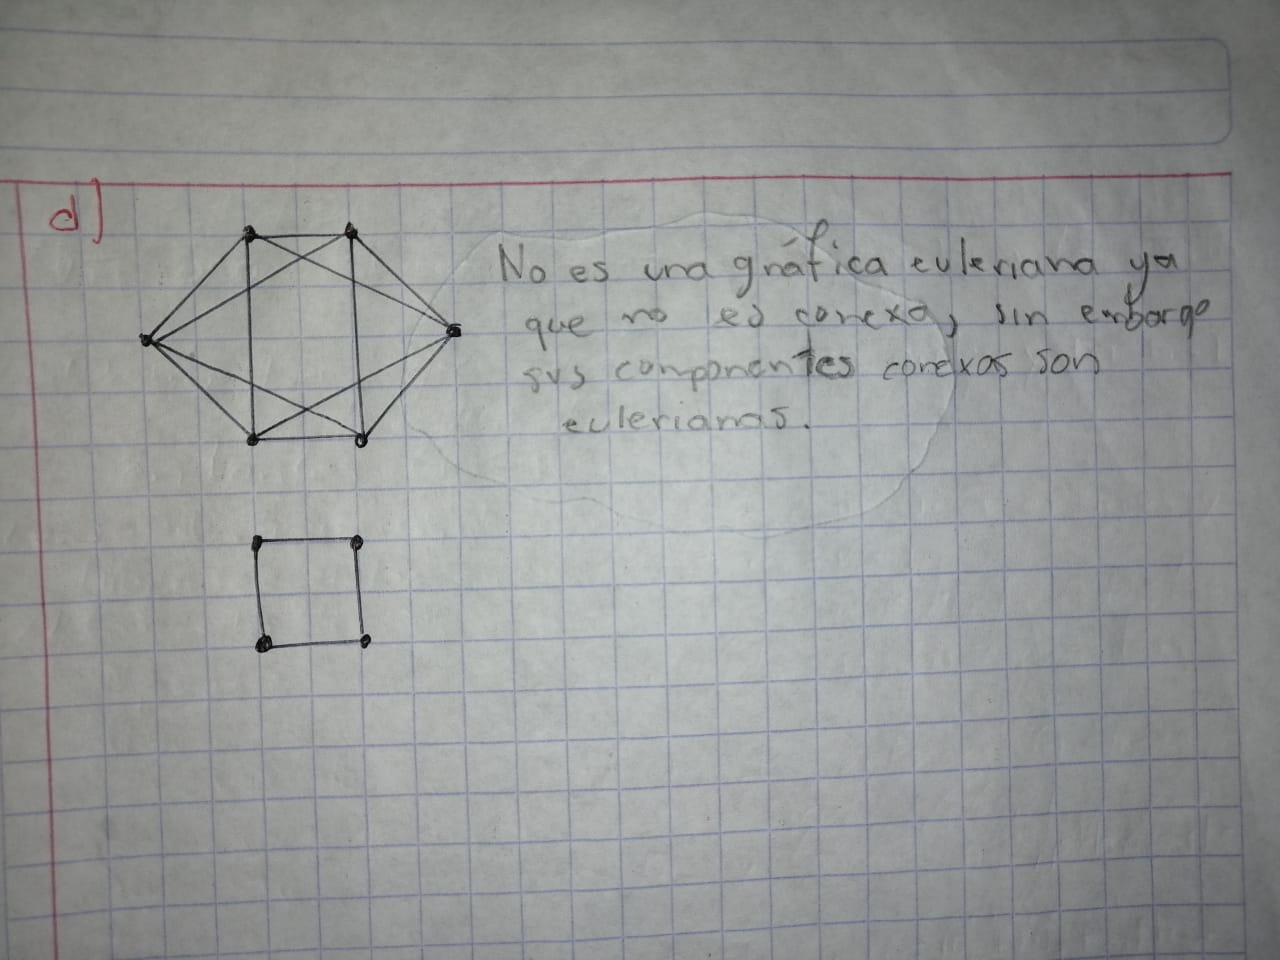 d)
No es una gráfica euleriana ya
que no es conexa, sin embargo
sus componentes conexas son
eulerianas.